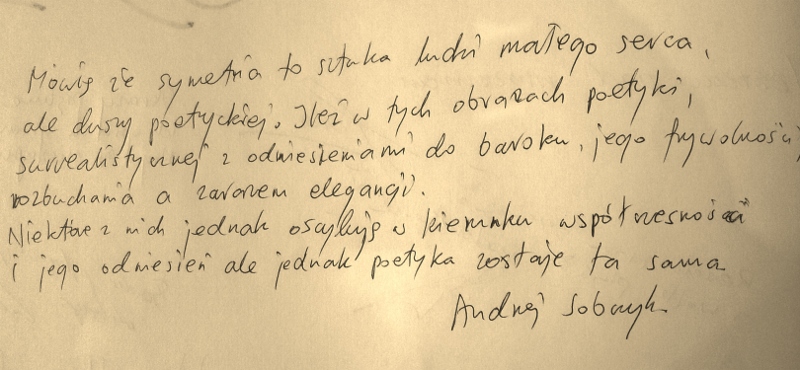 Mówię że symetria to sztuka ludzi małego serca,
ale duszy poetyckiej. Ileż w tych obrazach poetyki,
surrealistycznej z odniesieniami do baroku, jego frywolności,
rozbuchania a zarazem elegancji.
Niektóre z nich jednak oscylują w kierunku współczesności
i jego odniesień ale jednak poetyka zostaje ta sama
Andrzej Sobczyk